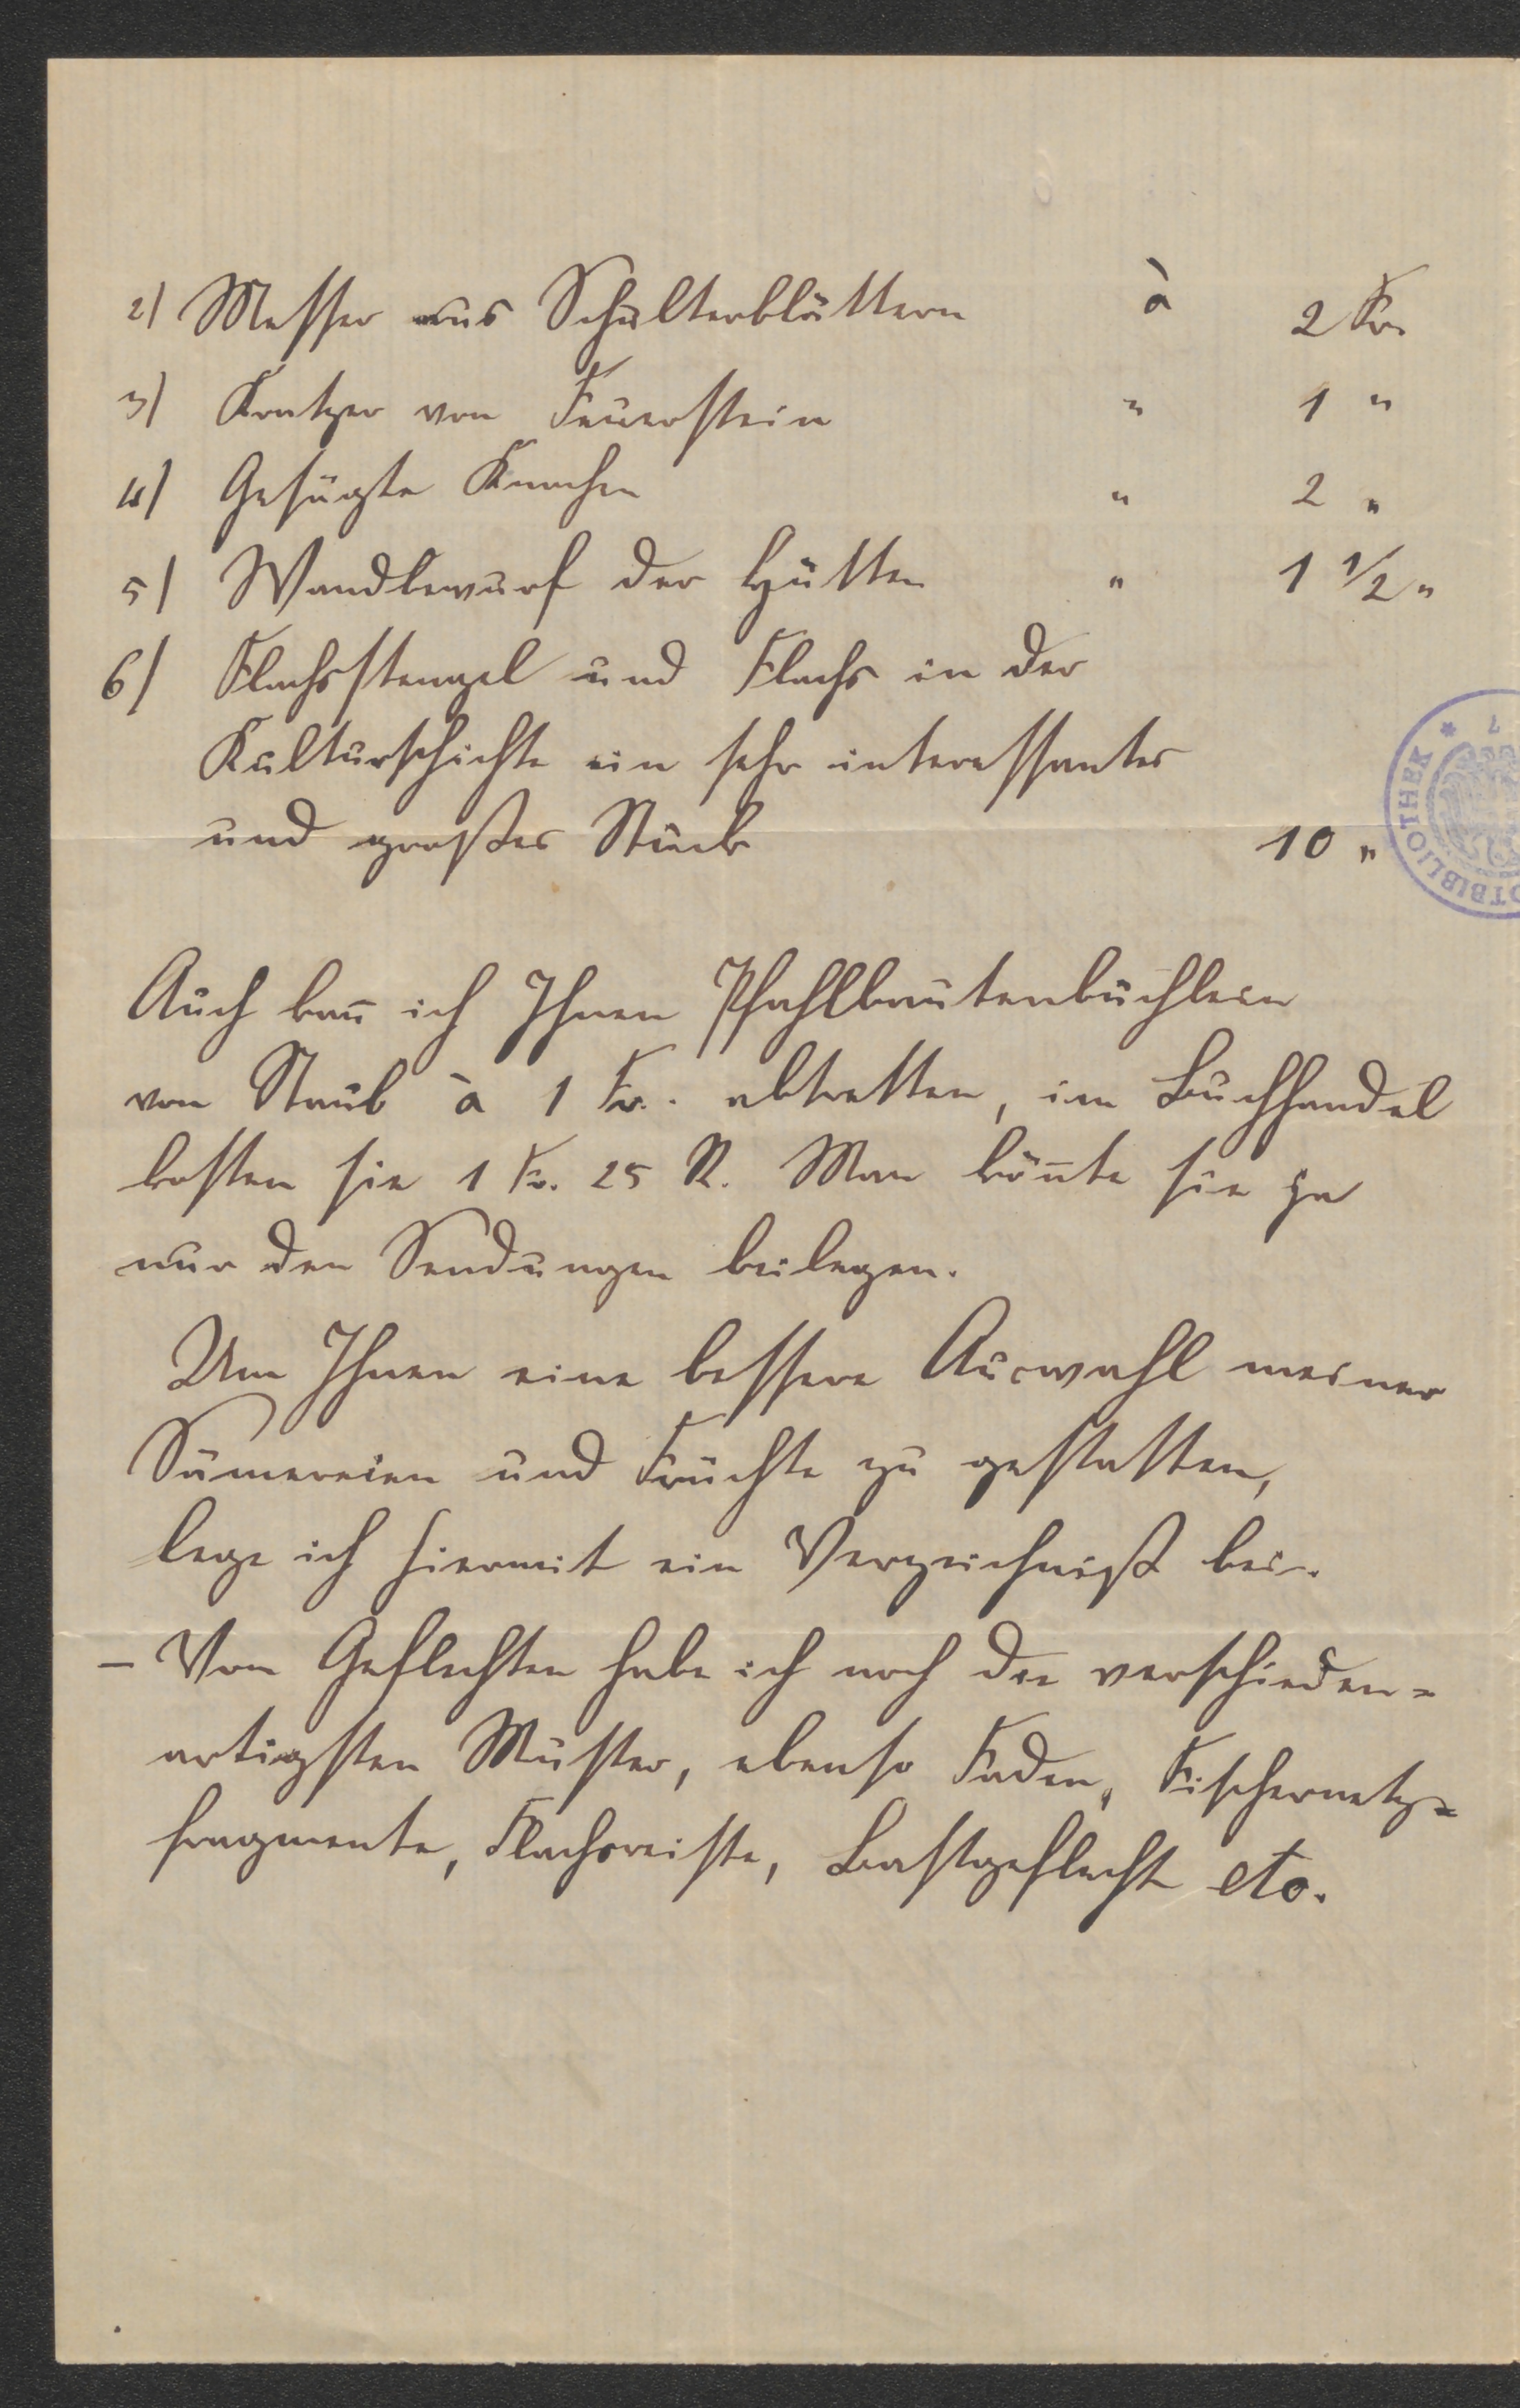 2) Messer aus Schulterblättern à 2 Fr.
3) Kratzer von Feuerstein " 1 "
4) Gesägte Knochen " 2 "
5) Wandbewurf der Hütten " 1 1/2 "
6) Flachsstengel und Flachs in der
Kulturschichte ein sehr interessantes
und großes Stück 10 "
Auch kan̄ ich Ihnen Pfahlbautenbüchlein
von Staub à 1 Fr. abtretten, im Buchhandel
kosten sie 1 Fr. 25 R. Man kön̄te sie ja
nur den Sendungen beilegen.
Um Ihnen eine bessere Auswahl meiner
Sämereien und Früchte zu gestatten,
lege ich hiermit ein Verzeichniß bei.
– Von Geflechten habe ich noch die verschieden=
artigsten Muster, ebenso Faden, Fischernetz=
fragmente, Flachsreiste, Bastgeflecht etc.
OTBIBLIOTHEK * 7